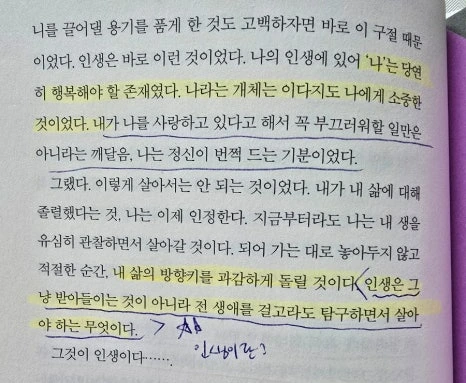 니를 끌어댈 용기를 품게 한 것도 고백하자면 바로 이 구절 때문
이었다. 인생은 바로 이런 것이었다. 나의 인생에 있어 ‘나’는 당연
히 행복해야 할 존재였다. 나라는 개체는 이다지도 나에게 소중한
것이었다. 내가 나를 사랑하고 있다고 해서 꼭 부끄러워할 일만은
아니라는 깨달음, 나는 정신이 번쩍 드는 기분이었다.
그랬다. 이렇게 살아서는 안 되는 것이었다. 내가 내 삶에 대해
졸렬했다는 것, 나는 이제 인정한다. 지금부터라도 나는 내 생을
유심히 관찰하면서 살아갈 것이다. 되어 가는 대로 놓아두지 않고
적절한 순간, 내 삶의 방향키를 과감하게 돌릴 것이다. 인생은 그
냥 받아들이는 것이 아니라 전 생애를 걸고라도 탐구하면서 살아
야 하는 무엇이다.
그것이 인생이다……
인생이란?